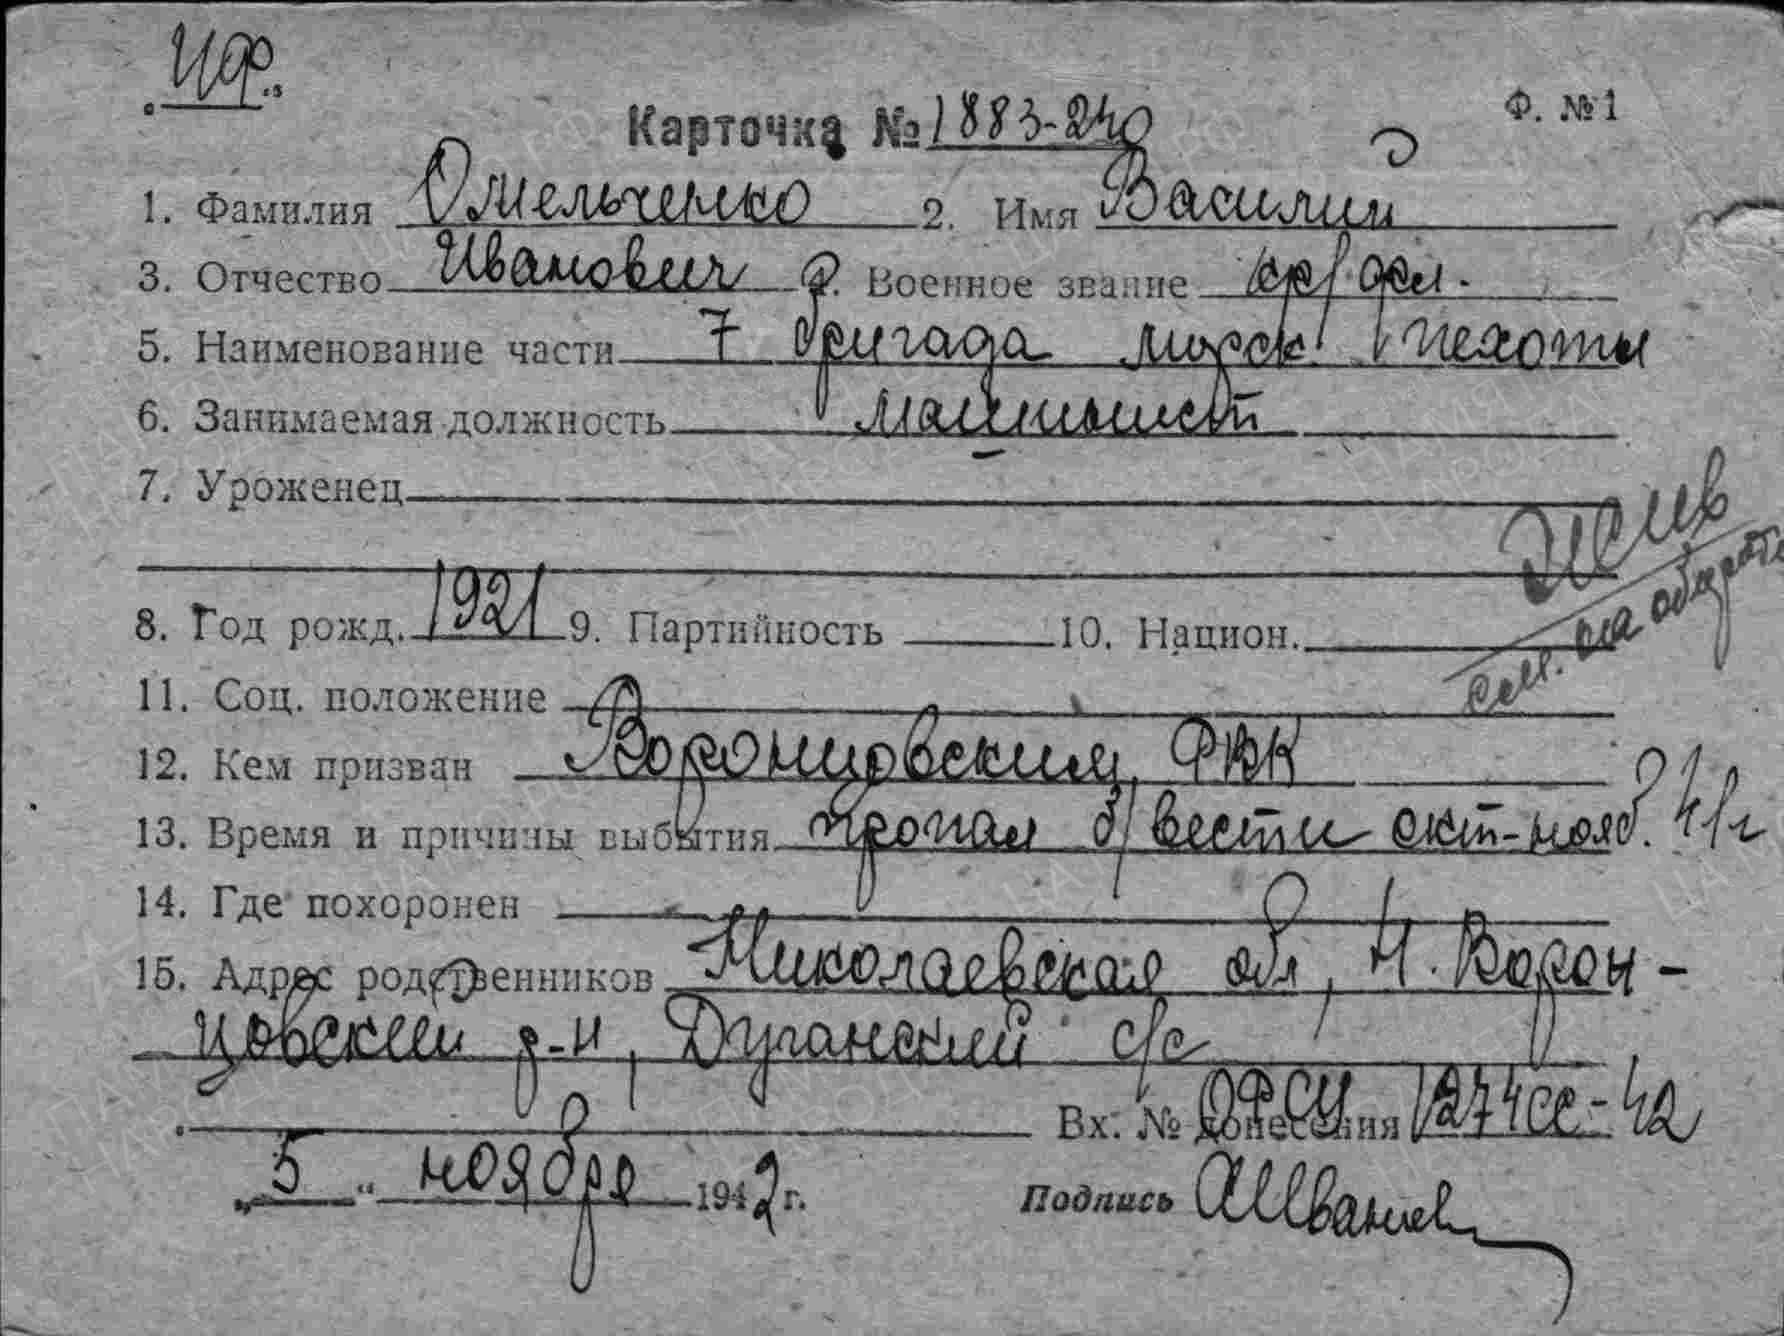 ЧФ.
Ф. №1
Карточка №1883-240
1. Фамилия Омельченко 2. Имя Василий
3. Отчество Иванович Военное звание кр/фл.
5. Наименование части 7 бригада морск пехоты
6. Занимаемая должность машинист
7. Уроженец
Жив
см. на обороте
8. Год рожд. 1921 9. Партийность 10. Национ.
11. Соц. положение
12. Кем призван РВК
13. Время и причины выбытия пропал б/вести окт-нояб. 41г
14. Где похоронен
15. Адрес родственников Николаевская обл, Н. Ворон-
цовский р-н, с/с
Вх. № донесения 1274сс-42
„5“ ноября 1942г. Подпись